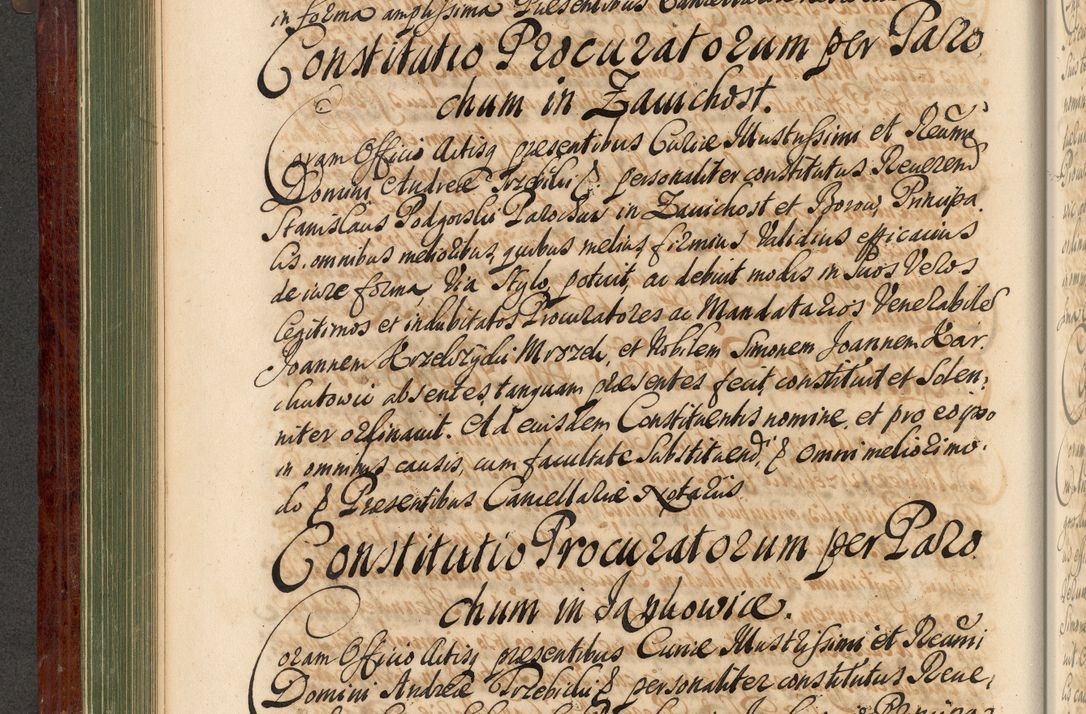 in forma amplissima Praesentibus
Constitutio Procuratorum per Paro
chum in Zawichost.
Coram Officio Actisq praesentibus Curiae Illustrissimi et Reuerñ
Domini Andreae Trzebicki &. personaliter constitutus Reuerend
Stanislaus Podgorski Parochus in Zawichost et Borow, Principa
lis, omnibus melioribus, quibus melius firmius Validius efficacius
de iure forma Via Stylo, potuit, ac debuit modis in suos Veros
legitimos et indubitatos Procuratores ac Mandatarios Venerabiles
Joannem Mrozek, et Nobilem Simonem Joannem Kar
chutowic absentes, tanquam praesentes fecit, constituit et solen,
niter ordinauit. Ad eiusdem Constituentis nomine, et pro eo ipso
in omnibus causis, cum facultate substituend, & omni meliori mo,
do & Praesentibus Cancellariae Notariis
Constitutio Procuratorum per Paro
chum in Janowice.
Coram Officio Actisq praesentibus Curiae Illustrissimi et Reuerñi
Domini Andreae Trzebicki & personaliter constitutus Reue,